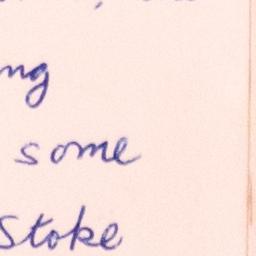 ng
some
Stoke